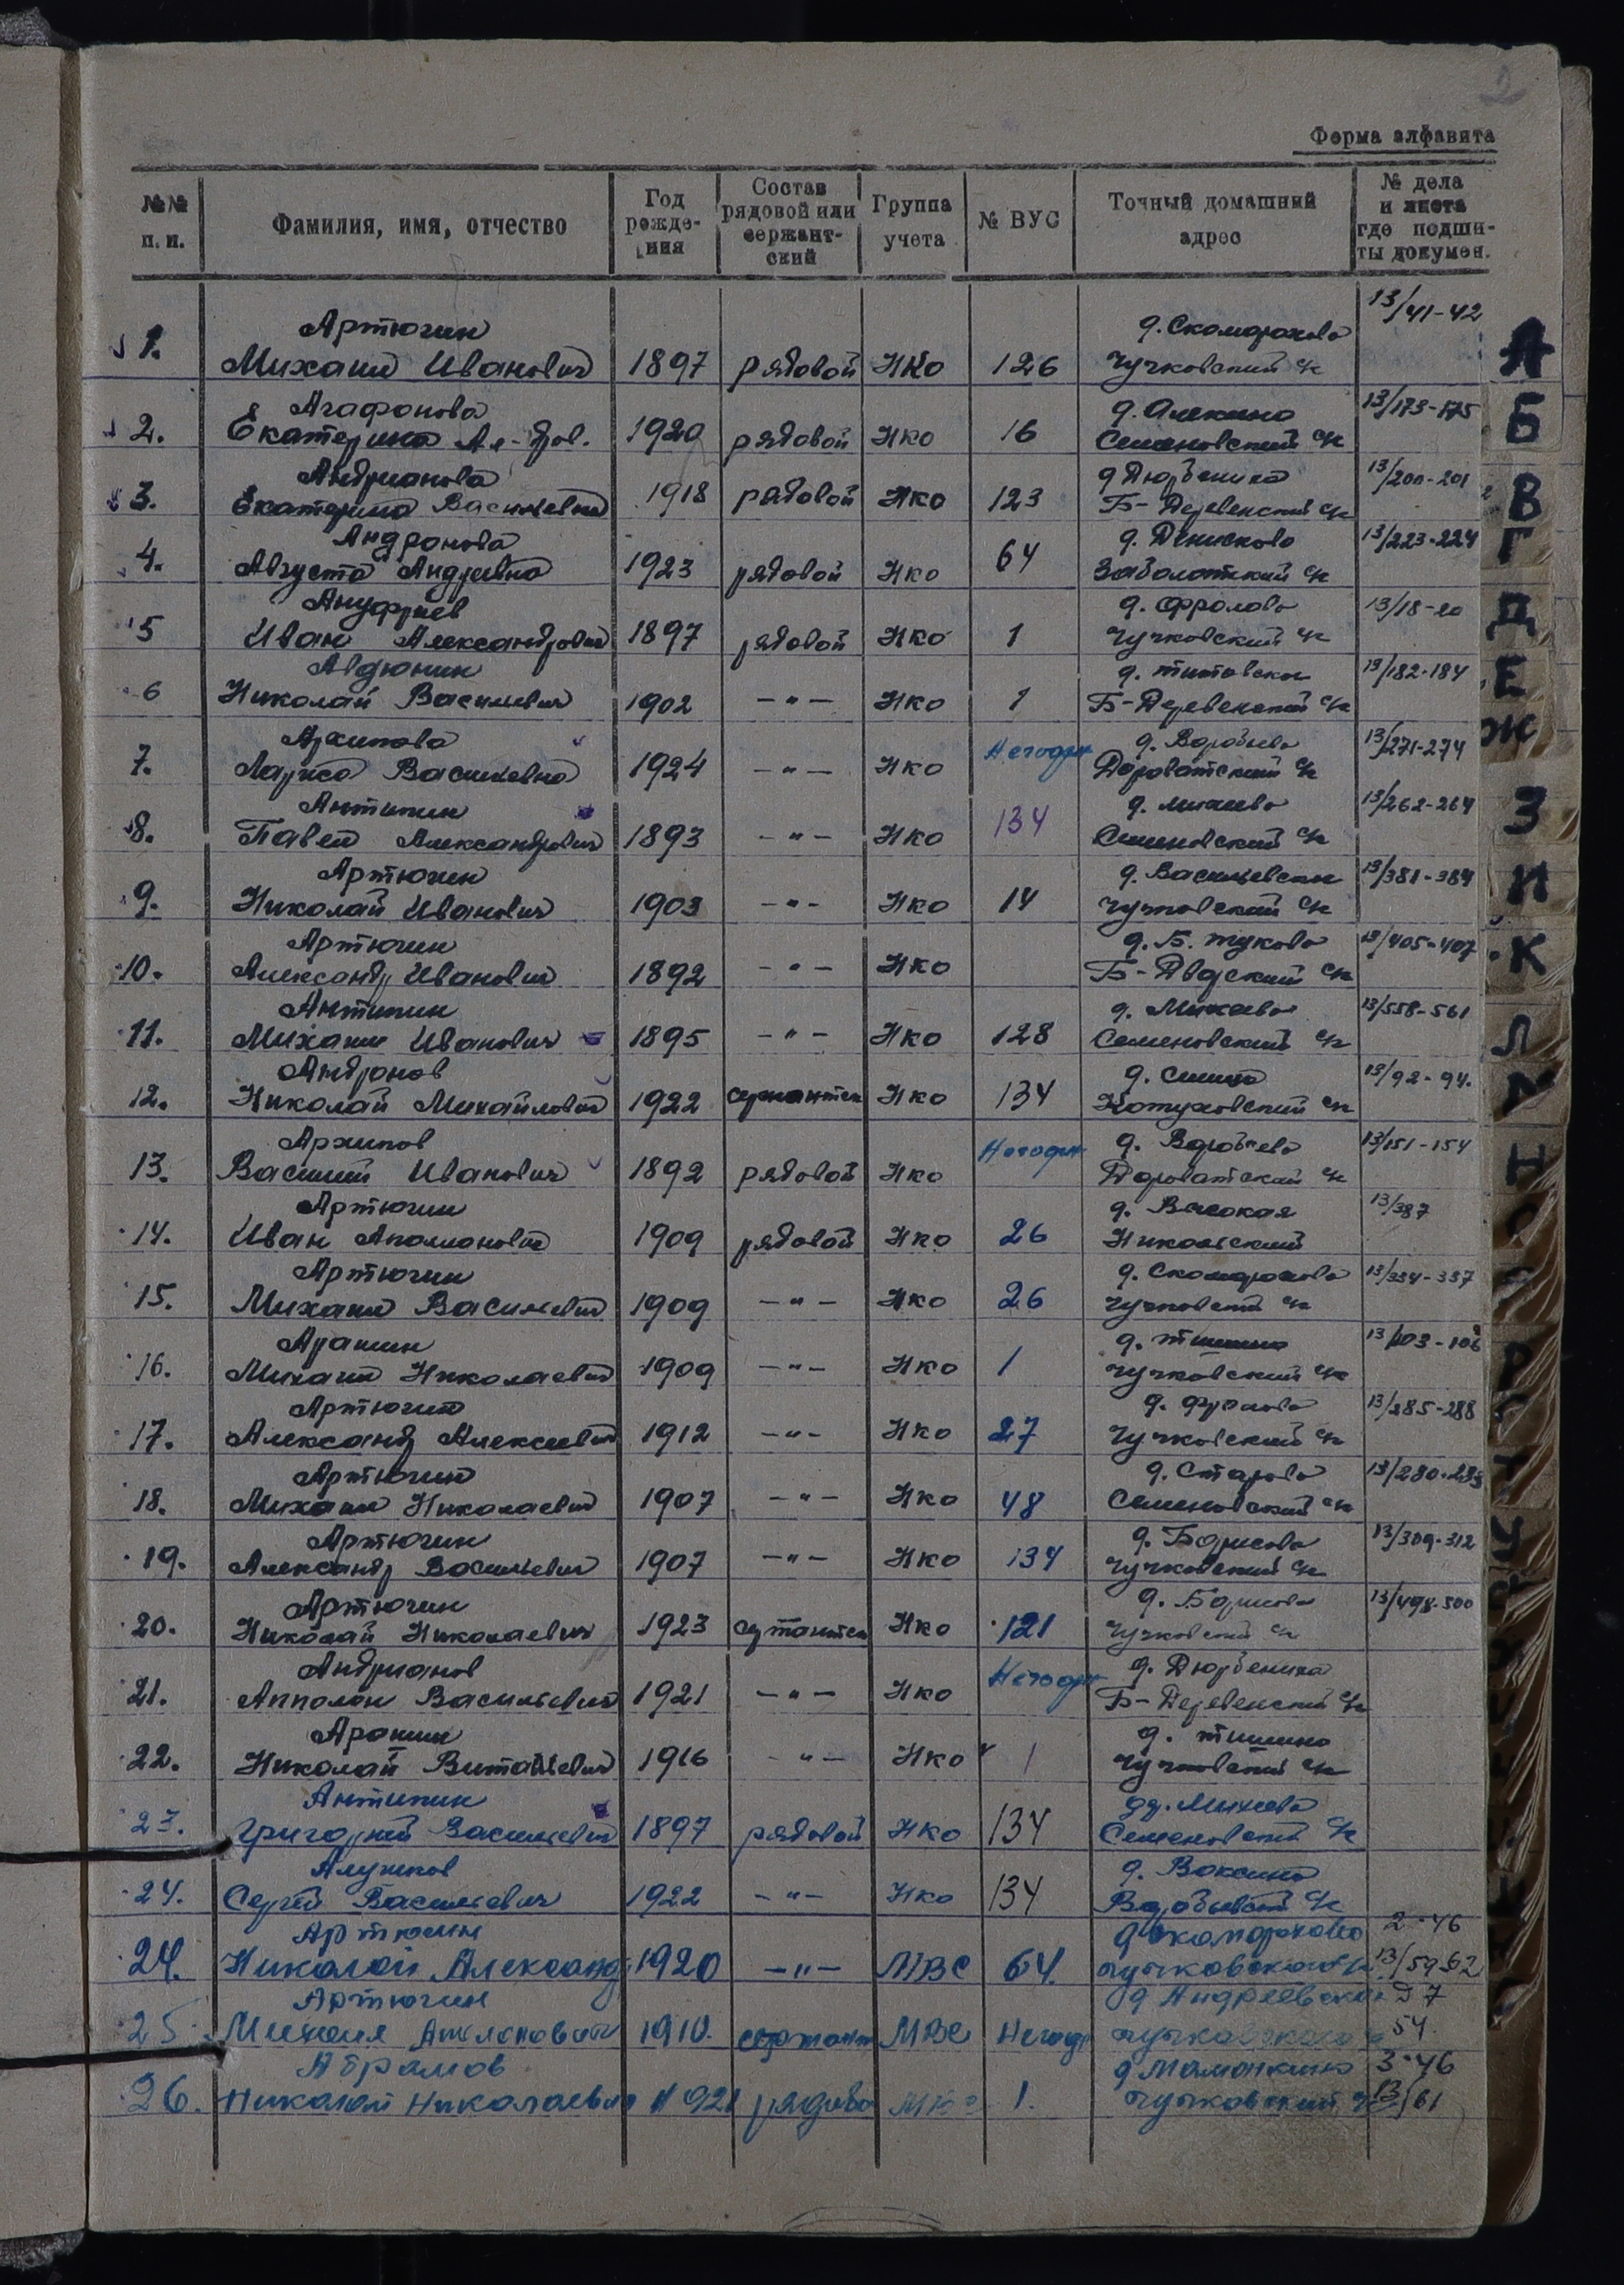 2
Форма алфавита
№№ п.п. Фамилия, имя, отчество Год рождения Состав рядовой или сержантский Группа учета № ВУС Точный домашний адрес № дела и листа где подшиты докумен.
Артюгин д. Скоморохово 13/41-42
1. Михаил Иванович 1897 рядовой НКО 126 Чучковский с/с
Агафонова д. Алекино 13/173-175
2. Екатерина Ал-дров. 1920 рядовой НКО 16 Семеновский с/с
Андрианова д. Дюрбениха 13/200-201
3. Екатерина Васильевна 1918 рядовой НКО 123 Б-Деревенский с/с
Андронова д. Денисково 13/223-224
4. Августа Андреевна 1923 рядовой НКО 64 Заболотский с/с
Ануфриев д. Фролово 13/18-20
5 Иван Александрович 1897 рядовой НКО 1 Чучковский с/с
Авдюнин д. Титовское 13/182-184
6 Николай Васильевич 1902 -"- НКО 1 Б-Деревенский с/с
Архипова Негодн д. Воробьево 13/271-274
7. Лариса Васильевна 1924 -"- НКО Дороватский с/с
Антипин д. Михеево 13/262-264
8. Павел Александрович 1893 -"- НКО 134 Семеновский с/с
Артюгин д. Васильевское 13/381-384
9. Николай Иванович 1903 -"- НКО 14 Чучковский с/с
Артюгин д. Б. Жуково 13/405-407
10. Александр Иванович 1892 -"- НКО Б-Дворский с/с
Антипин д. Михеево 13/558-561
11. Михаил Иванович 1895 -"- НКО 128 Семеновский с/с
Андронов 13/92-94.
12. Николай Михайлович 1922 сержантск НКО 134 с/с
Архипов Негодн д. Воробьево 13/151-154
13. Василий Иванович 1892 рядовой НКО Дороватский с/с
Артюгин д. Высокая 13/387
14. Иван Аполонович 1909 рядовой НКО 26 Никольский
Артюгин д. Скоморохово 13/334-337
15. Михаил Васильевич 1909 -"- НКО 26 Чучковский с/с
Аралин д. Тишино 13/103-106
16. Михаил Николаевич 1909 -"- НКО 1 Чучковский с/с
Артюгин д. Фролово 13/285-288
17. Александр Алексеевич 1912 -"- НКО 27 Чучковский с/с
Артюгин д. Старово 13/280-283
18. Михаил Николаевич 1907 -"- НКО 48 Семеновский с/с
Артюгин д. Борисово 13/309-312
19. Александр Васильевич 1907 -"- НКО 134 Чучковский с/с
Артюгин д. Борисово 13/498-500
20. Николай Николаевич 1923 сержантск НКО 121 Чучковский с/с
Андрианов Негодн д. Дюрбениха
21. Апполон Васильевич 1921 -"- НКО Б-Деревенский с/с
д. Тишино
22. Николай Витальевич 1916 -"- НКО 1 Чучковский с/с
Антипин д. Михеево
23. Григорий Васильевич 1897 рядовой НКО 134 Семеновский с/с
д. Воксино
24. Сергей Васильевич 1922 -"- НКО 134 с/с
Артюгин д Скоморохово 2-46
24. Николай Александр 1920 -"- МВС 64. Чучковского с/с 13/59-62
Артюгин д Андреевское Д 7
25. Михаил Аполонович 1910. сержант МВС Негодн Чучковского 54
Абрамов д Мамонкино 3-46
26. Николай Николаевич 1921 рядово 1. Чучковский 13/61
А
Б
В
Г
Д
Е
Ж
З
И
К
Л
М
Н
О
Р
У